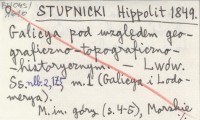 STUPNICKI Hippolit 1849.
Galicya pod względem geo-
graficzno-topograficzno-
-historycznym. — Lwów.
Ss. nlb. 2, 125 m. 1 (Galicya i Lodo-
merya).
M. in. góry (s. 4-5), Morskie